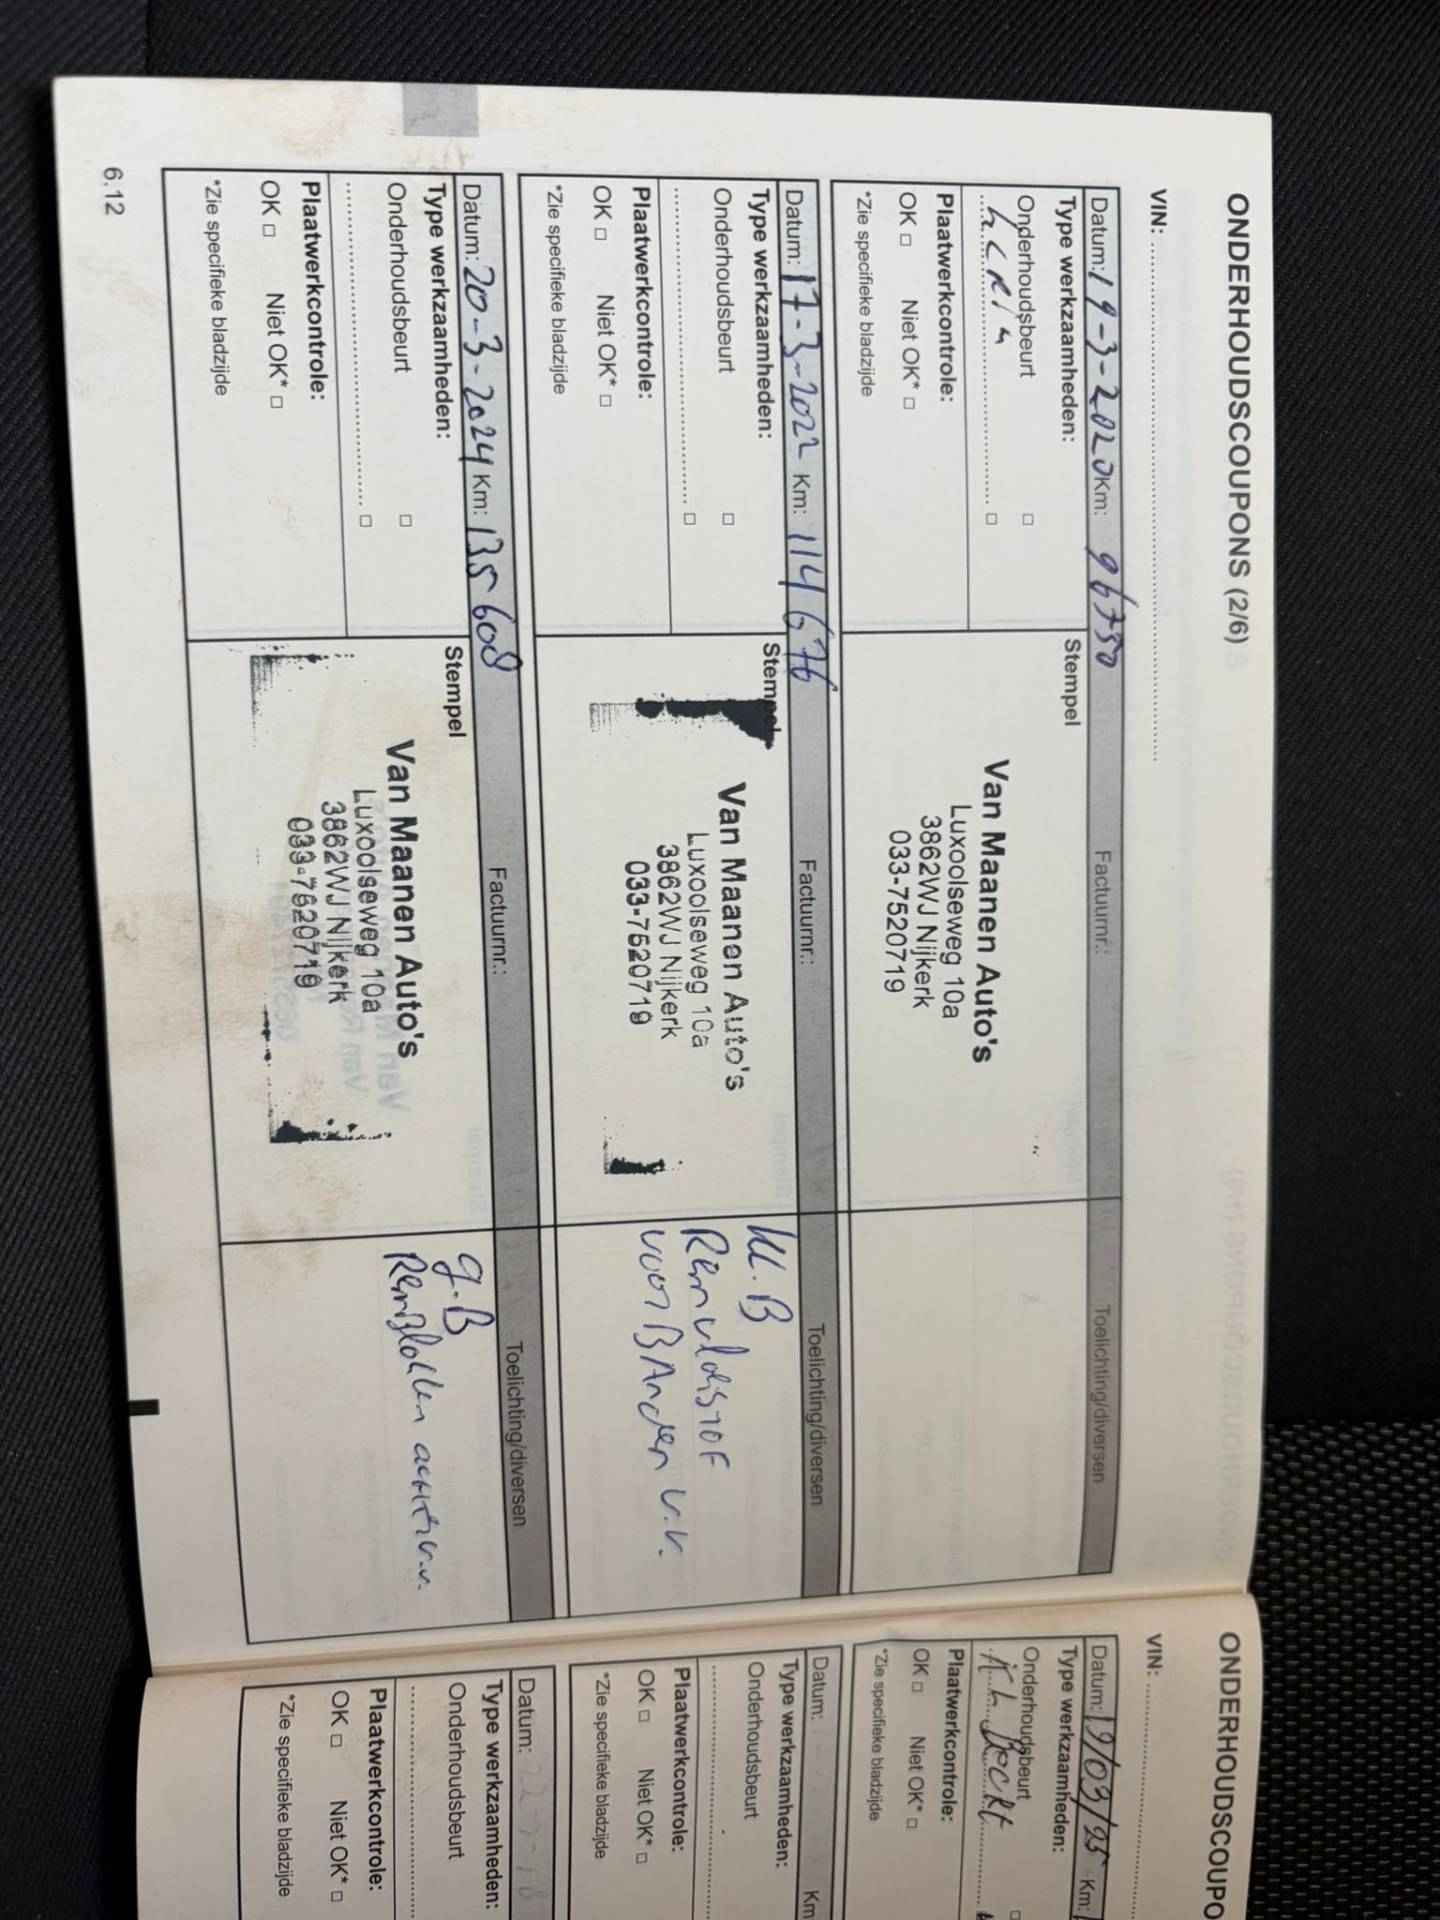 ONDERHOUDSCOUPONS (2/6)
VIN:
Datum: 19-3-2020 Km: 96750 Factuurnr.: Toelichting/diversen
Type werkzaamheden:
Stempel
Onderhoudsbeurt □
□
Plaatwerkcontrole:
OK □ Niet OK* □
*Zie specifieke bladzijde
Van Maanen Auto's
Luxoolseweg 10a
3862WJ Nijkerk
033-7520719
Datum: 17-3-2022 Km: 114 676 Factuurnr.: Toelichting/diversen
Type werkzaamheden:
Stempel
Onderhoudsbeurt □
□
Plaatwerkcontrole:
OK □ Niet OK* □
*Zie specifieke bladzijde
Van Maanen Auto's
Luxoolseweg 10a
3862WJ Nijkerk
033-7520719
kl.B
Remvloistof
voor BAnden v.v.
Datum: 20-3-2024 Km: 135 608 Factuurnr.: Toelichting/diversen
Type werkzaamheden:
Stempel
Onderhoudsbeurt □
□
Plaatwerkcontrole:
OK □ Niet OK* □
*Zie specifieke bladzijde
Van Maanen Auto's
Luxoolseweg 10a
3862WJ Nijkerk
033-7520719
g.B
RemBlokken achter v.v.
6.12
ONDERHOUDSCOUPO
VIN:
Datum: 19/03/25 Km:
Type werkzaamheden:
Onderhoudsbeurt
Kl. Beurt
Plaatwerkcontrole:
OK □ Niet OK* □
*Zie specifieke bladzijde
Datum: Km
Type werkzaamheden:
Onderhoudsbeurt
Plaatwerkcontrole:
OK □ Niet OK* □
*Zie specifieke bladzijde
Datum:
Type werkzaamheden:
Onderhoudsbeurt
Plaatwerkcontrole:
OK □ Niet OK* □
*Zie specifieke bladzijde